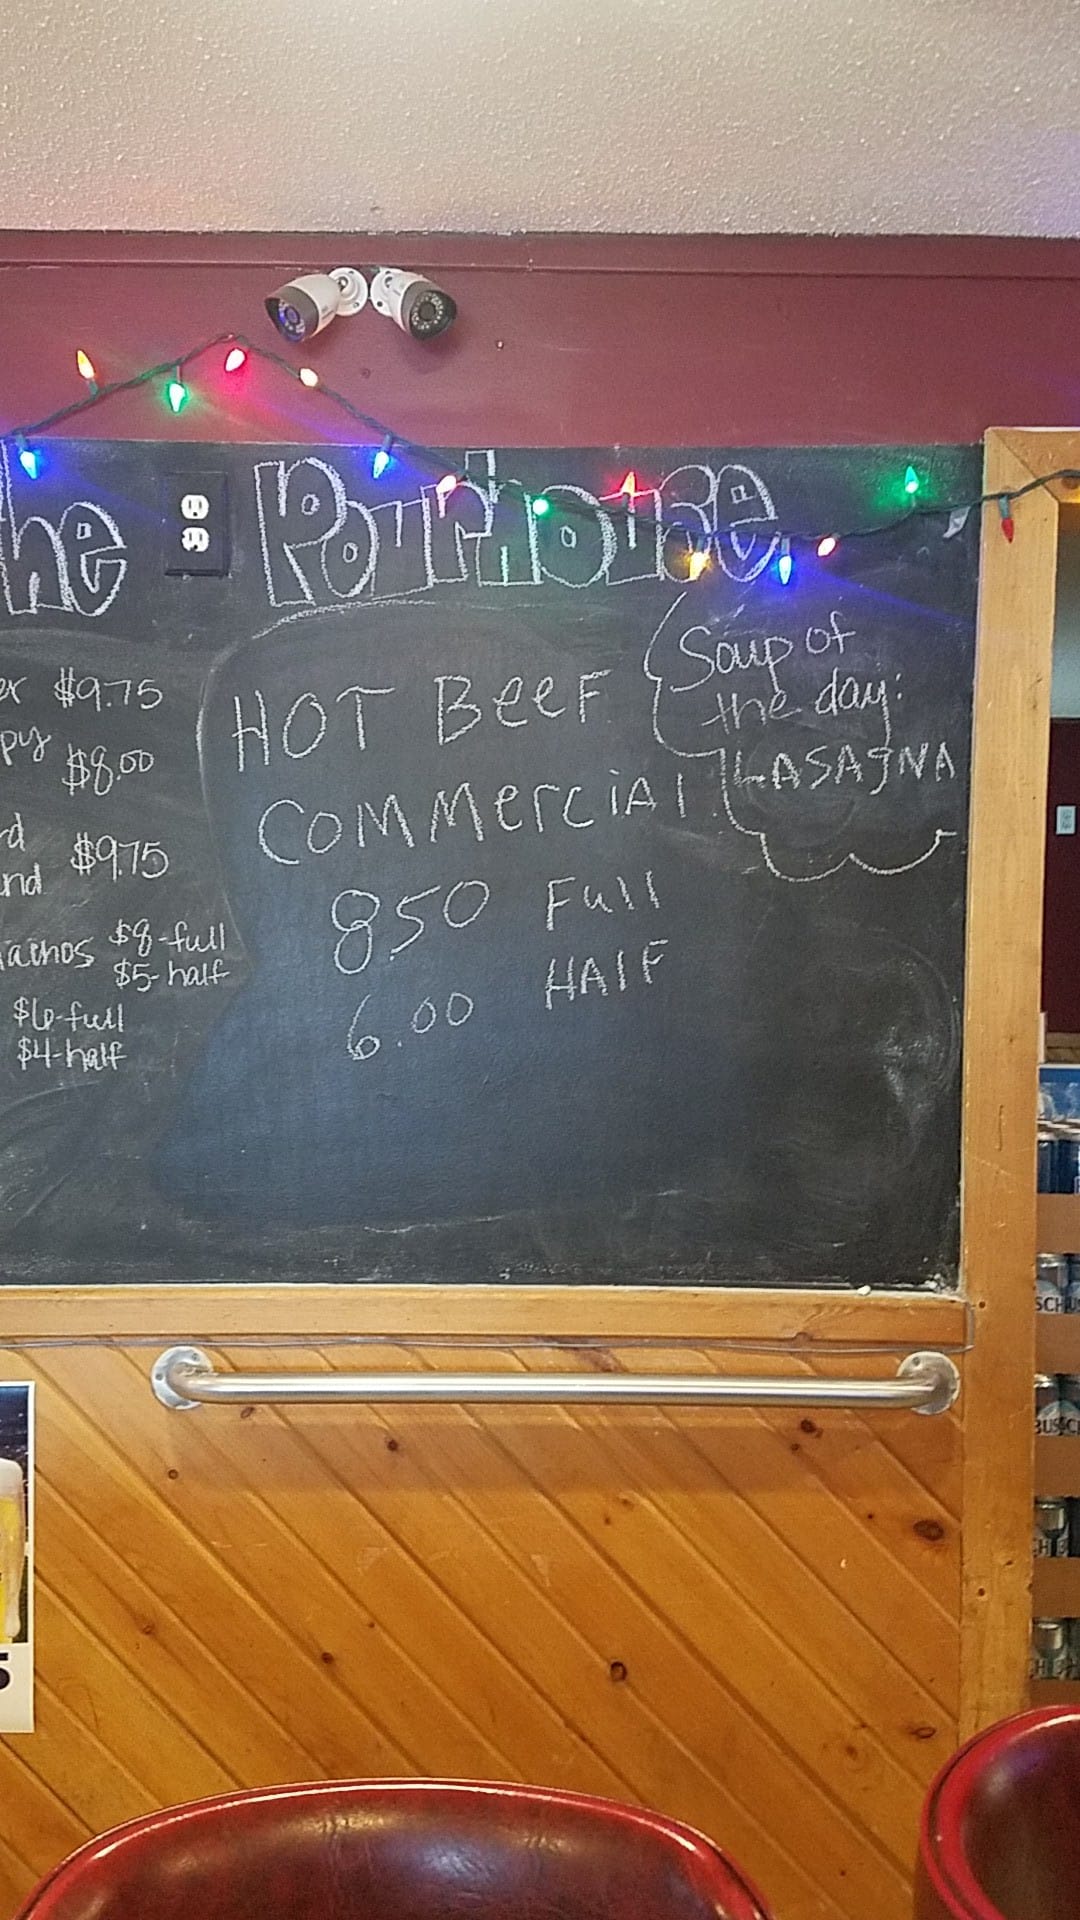 he Pourhouse
er $9.75
py $8.00
rd
nd $9.75
achos $8-full
$5-half
$6-full
$4-half
HOT BEEF
COMMERCIAL
8.50 Full
6.00 HALF
Soup of
the day:
LASAGNA
SCH
BUSCH
CH
CH
5